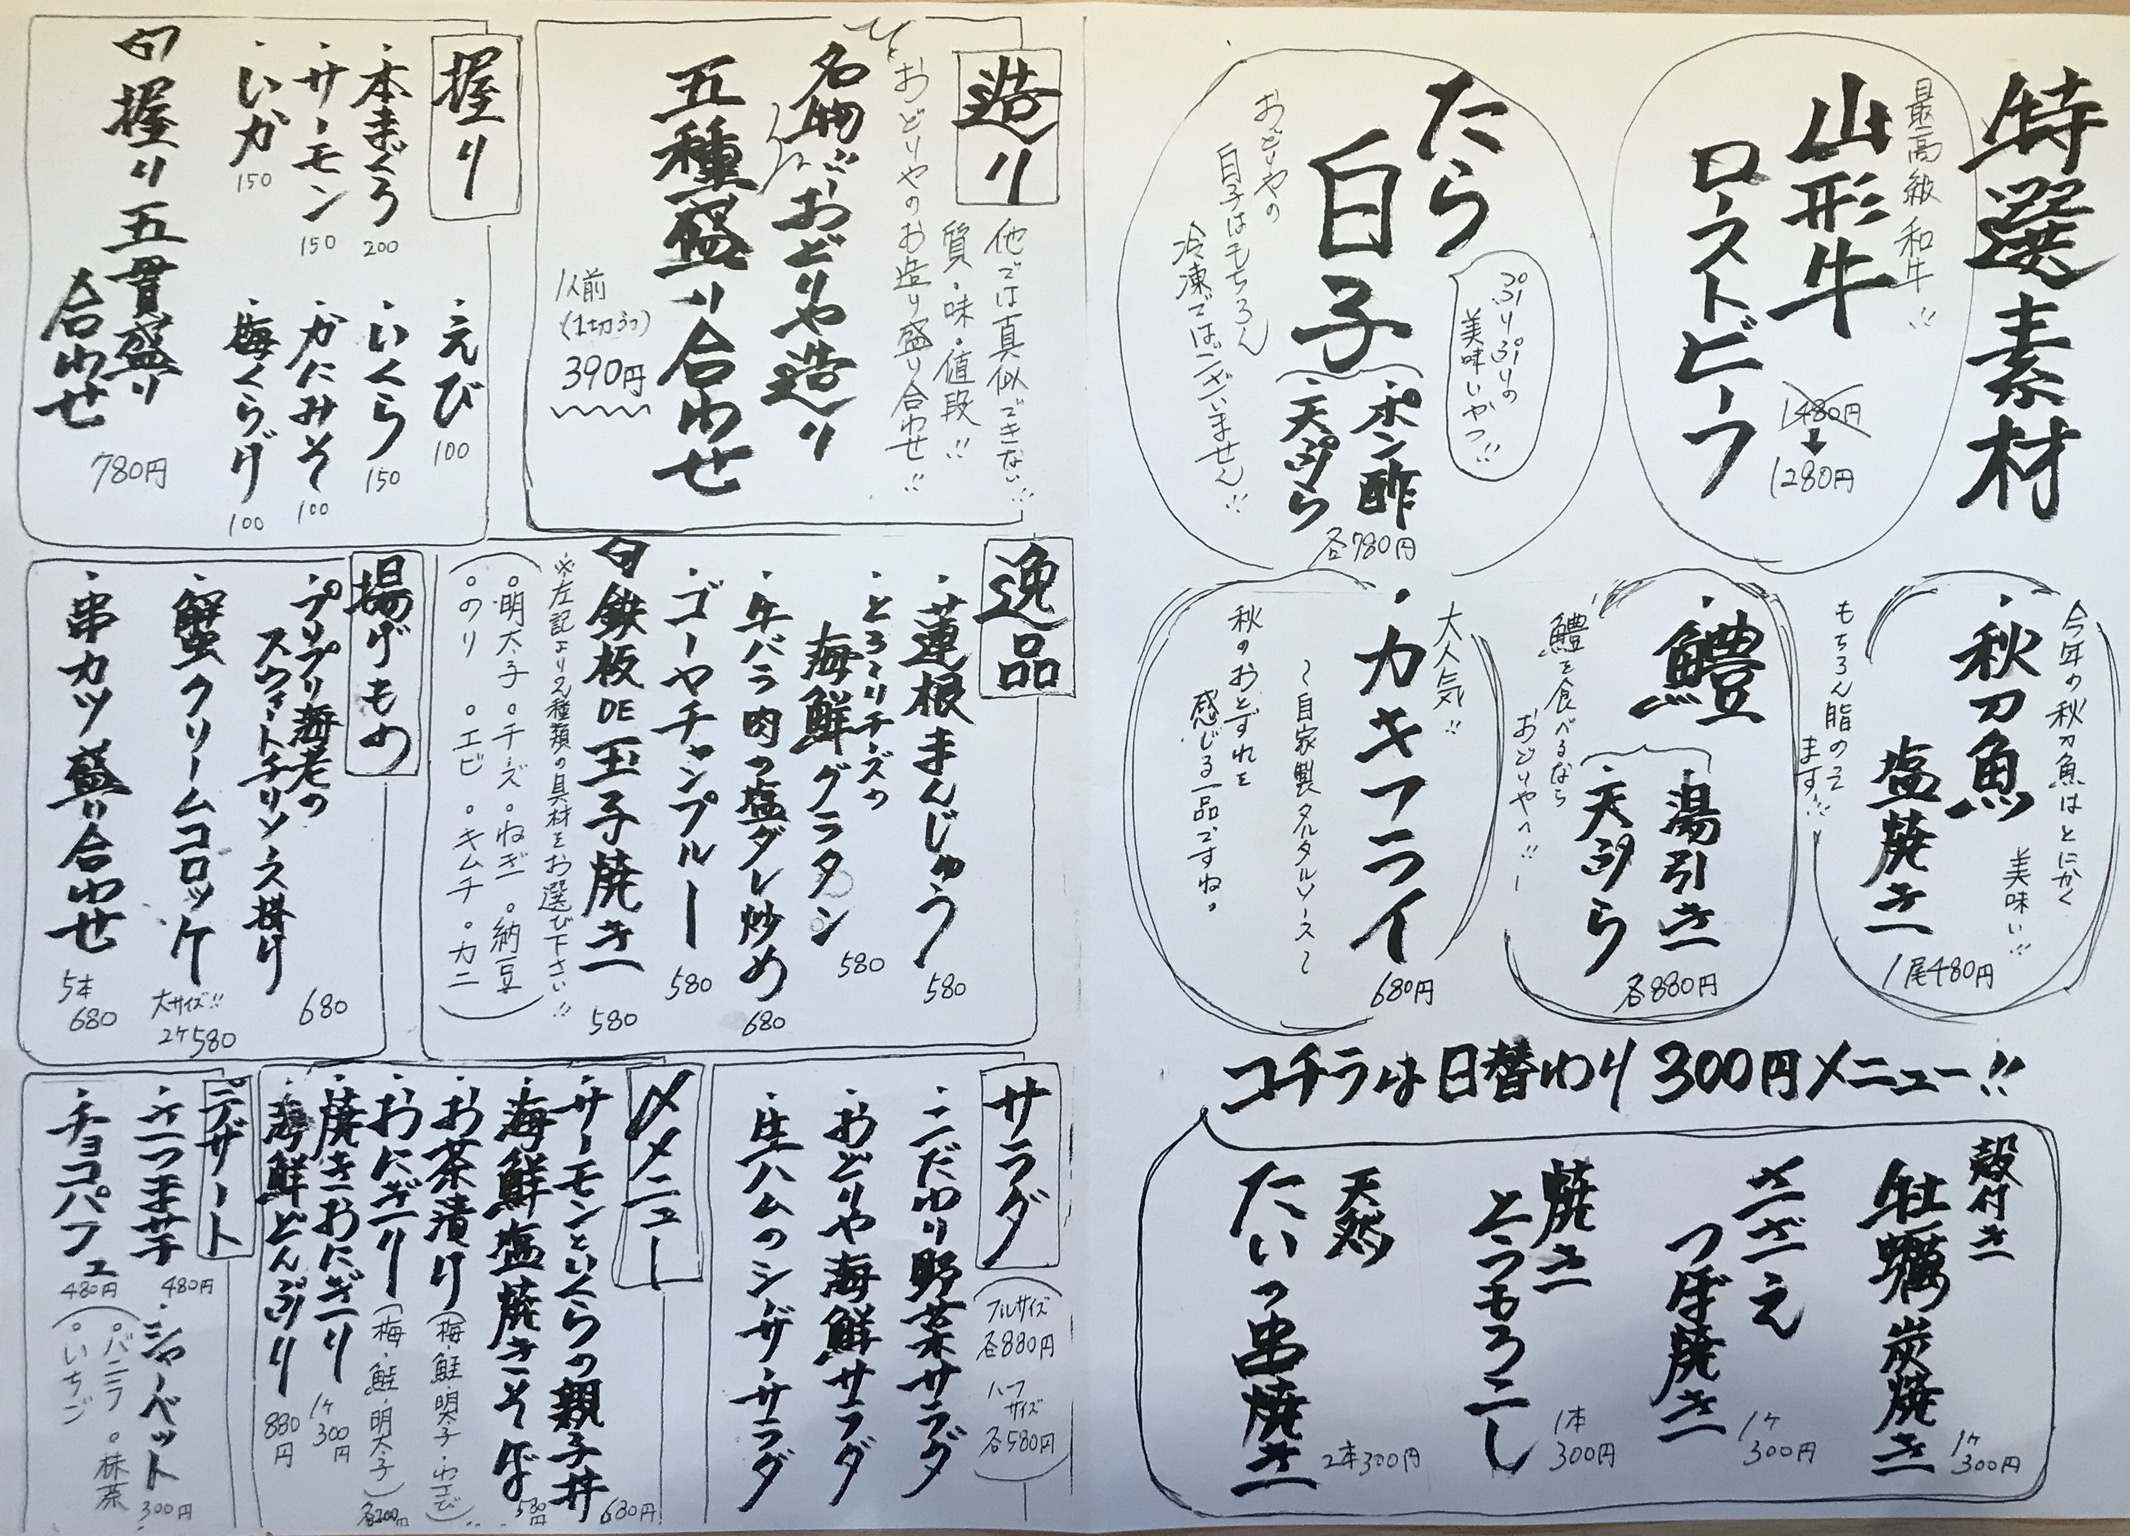 特選素材
最高級和牛!!
山形牛
ローストビーフ
1480円
1280円
たら
白子
ぷりぷりの
美味いやつ!!
・ポン酢
・天ぷら
各780円
おどりやの
白子はもちろん
冷凍ではございません!!
今年の秋刀魚はとにかく
美味い!!
・秋刀魚
塩焼き
もちろん脂のってます!!
1尾480円
・鱧
・湯引き
・天ぷら
鱧を食べるなら
おどりやへ!!
各880円
大人気!!
・カキフライ
~自家製タルタルソース~
秋のおとずれを
感じる一品ですね。
680円
コチラは日替わり300円メニュー!!
殻付き
牡蠣炭焼き
1ケ
300円
さざえ
つぼ焼き
1ケ
300円
焼き
とうもろこし
1本
300円
天然
たいの串焼き
2本300円
造り
他では真似できない!!
質・味・値段!!
おどりやのお造り盛り合わせ!!
名物!!おどりや造り
五種盛り合わせ
1人前
(1切ずつ)
390円
握り
・本まぐろ
200
・サーモン
150
・いか
150
・えび
100
・いくら
150
・かにみそ
100
・梅くらげ
100
握り五貫盛り
合わせ
780円
逸品
・蓮根まんじゅう
580
・とろ~りチーズの
海鮮グラタン
580
・牛バラ肉の塩ダレ炒め
680
・ゴーヤチャンプルー
580
鉄板DE玉子焼き
580
※左記より2種類の具材をお選び下さい!!
。明太子。チーズ。ねぎ。納豆
。のり。エビ。キムチ。カニ
揚げもの
・プリプリ海老の
スウィートチリソース掛け
680
・蟹クリームコロッケ
大サイズ!!
2ケ580
・串カツ盛り合わせ
5本
680
サラダ
フルサイズ
各880円
ハーフ
サイズ
各580円
・こだわり野菜サラダ
・おどりや海鮮サラダ
・生ハムのシーザーサラダ
〆メニュー
・サーモンといくらの親子丼
680円
・海鮮塩焼きそば
580円
・お茶漬け
(梅・鮭・明太子・わさび)
・おにぎり
(梅・鮭・明太子)
各200円
・焼きおにぎり
1ケ
300円
・海鮮どんぶり
880円
デザート
・さつま芋
480円
・シャーベット
300円
・チョコパフェ
480円
。バニラ。抹茶
。いちご